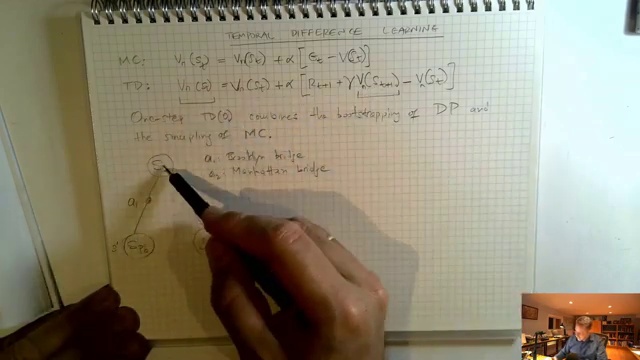 TEMPORAL DIFFERENCE LEARNING
MC: Vπ(St) = Vπ(St) + α [Gt − V(St)]
TD: Vπ(St) = Vπ(St) + α [Rt+1 + γVπ(St+1) − Vπ(St)]
One-step TD(0) combines the bootstrapping of DP and
the sampling of MC.
a1: Brooklyn bridge
a2: Manhattan bridge
a1
s'